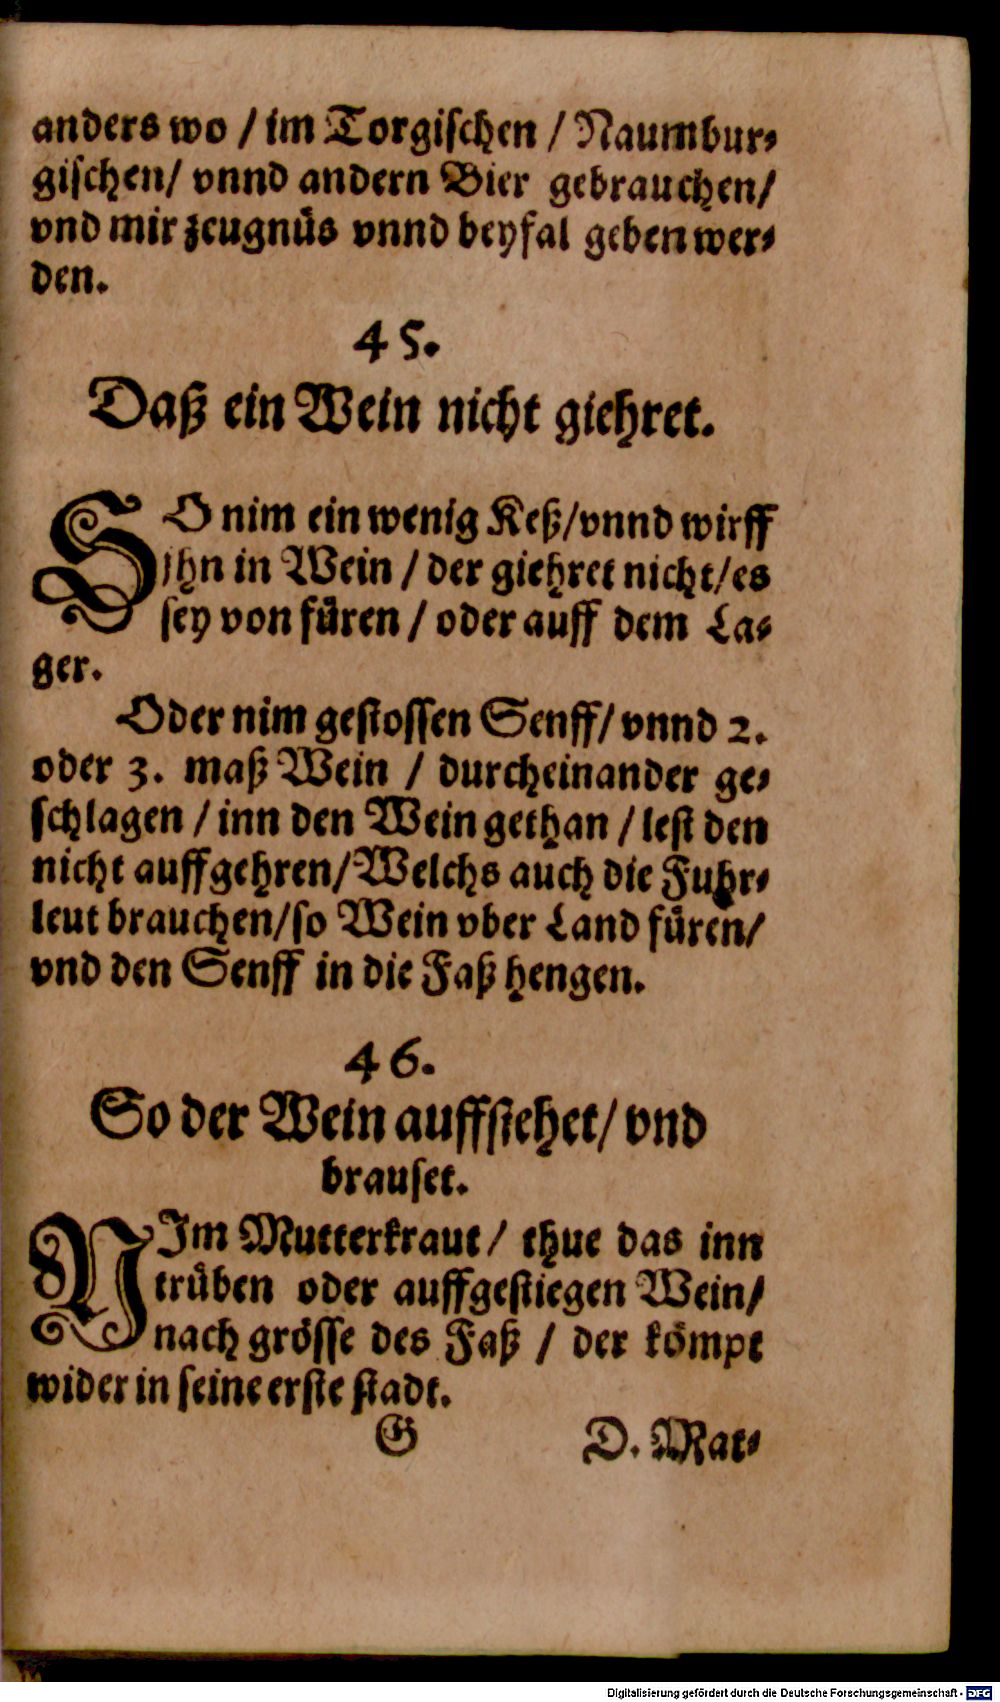 anders wo / im Torgischen / Naumbur⸗
gischen/ vnnd andern Bier gebrauchen/
vnd mir zeugnüs vnnd beyfal geben wer⸗
den.
45.
Daß ein Wein nicht giehret.
SO nim ein wenig Keß/vnnd wirff
jhn in Wein / der giehret nicht/es
sey von füren / oder auff dem La⸗
ger.
Oder nim gestossen Senff/ vnnd 2.
oder 3. maß Wein / durcheinander ge⸗
schlagen / inn den Wein gethan / lest den
nicht auffgehren/Welchs auch die Fuhr⸗
leut brauchen/so Wein vber Land füren/
vnd den Senff in die Faß hengen.
46.
So der Wein auffstehet/ vnd
brauset.
NIm Mutterkraut/ thue das inn
trüben oder auffgestiegen Wein/
nach grösse des Faß / der kömpt
wider in seine erste stadt.
G D. Mat⸗
Digitalisierung gefördert durch die Deutsche Forschungsgemeinschaft - DFG